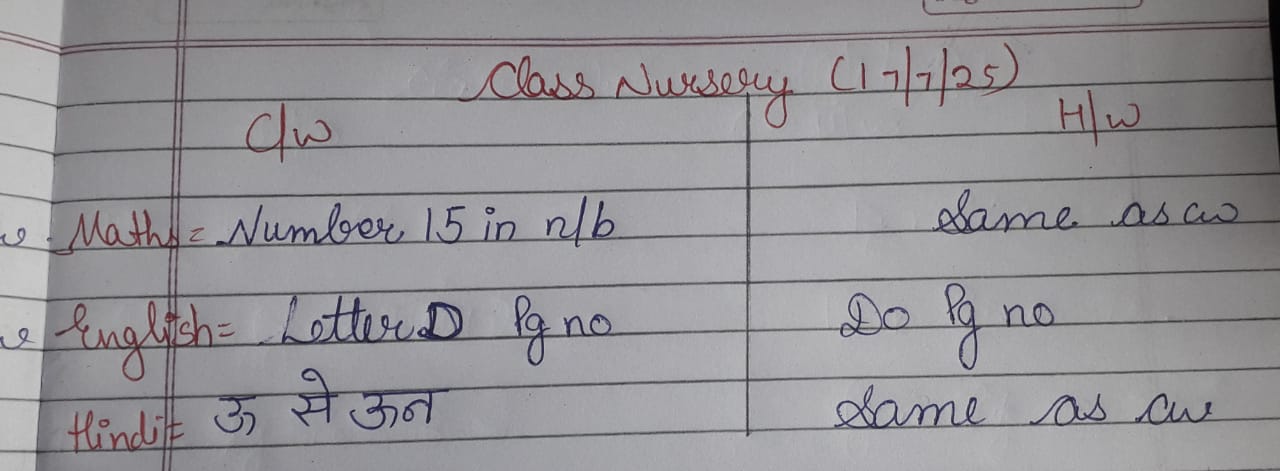 Class Nursery (17/7/25)
C/w H/w
Maths = Number 15 in n/b Same as cw
English = Letter D Pg no Do Pg no
Hindi = ऊ से ऊन Same as cw